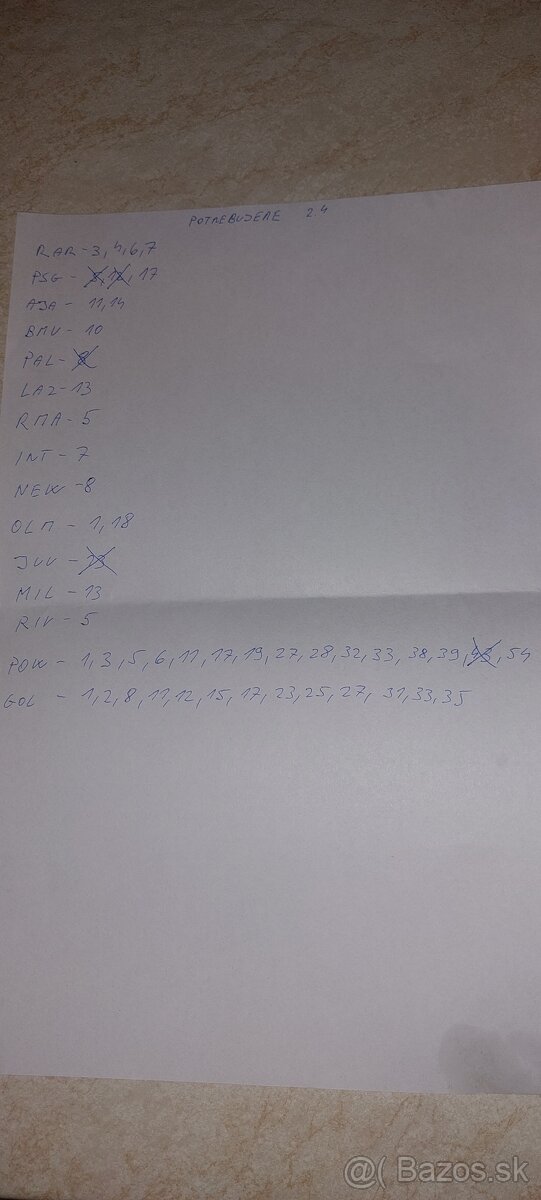 POTREBUJEME 2.4
RAR - 3,4,6,7
PSG - 8,12,17
AJA - 11,14
BMU - 10
PAL - 8
LAZ - 13
RMA - 5
INT - 7
NEW - 8
OLM - 1,18
JUV - 13
MIL - 13
RIV - 5
POW - 1,3,5,6,11,17,19,27,28,32,33,38,39,43,54
GOL - 1,2,8,11,12,15,17,23,25,27,31,33,35
@( Bazos.sk